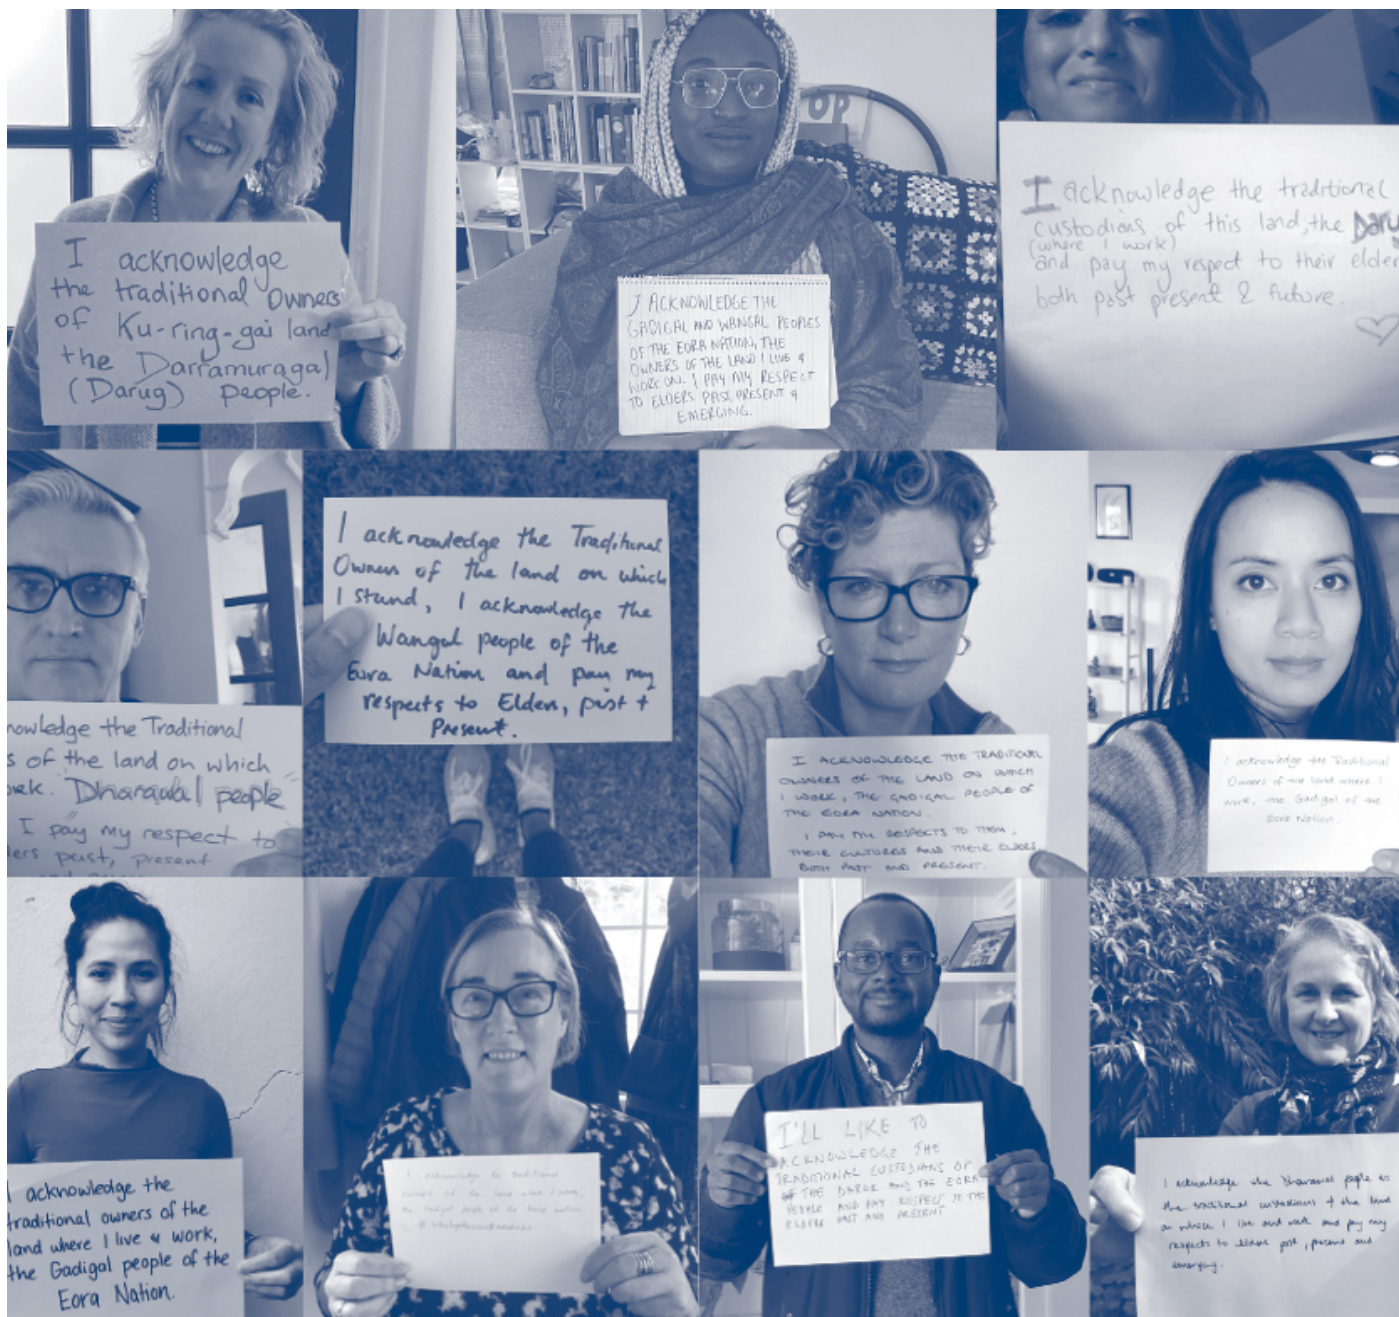 I acknowledge
the traditional Owners
of Ku-ring-gai land
the Darramuragal
(Darug) people.
I ACKNOWLEDGE THE
GADIGAL AND WANGAL PEOPLES
OF THE EORA NATION, THE
OWNERS OF THE LAND I LIVE &
WORK ON. I PAY MY RESPECT
TO ELDERS PAST, PRESENT &
EMERGING.
OP
I acknowledge the traditional
custodians of this land, the Daru
(where I work)
and pay my respect to their elder
both past present & future.
nowledge the Traditional
s of the land on which
ork. "Dharawal people"
I pay my respect to
ders past, present
I acknowledge the Traditional
Owners of the land on which
I stand, I acknowledge the
Wangal people of the
Eora Nation and pay my
respects to Elders, past +
Present.
I ACKNOWLEDGE THE TRADITIONAL
OWNERS OF THE LAND ON WHICH
I WORK, THE GADIGAL PEOPLE OF
THE EORA NATION.
I PAY MY RESPECTS TO THEM,
THEIR CULTURES AND THEIR ELDERS
BOTH PAST AND PRESENT.
I acknowledge the Traditional
Owners of the land where I
work, the Gadigal of the
Eora Nation.
I acknowledge the
traditional owners of the
land where I live & work,
the Gadigal people of the
Eora Nation.
I acknowledge the traditional
owners of the land where I work,
the Gadigal people of the Eora nation
I'LL LIKE TO
ACKNOWLEDGE THE
TRADITIONAL CUSTODIANS OF
THE DARUK AND THE EORA
PEOPLE AND PAY RESPECT TO THE
ELDERS PAST AND PRESENT
I acknowledge the Dharawal people as
the traditional custodians of the land
on which I live and work and pay my
respects to elders past, present and
emerging.